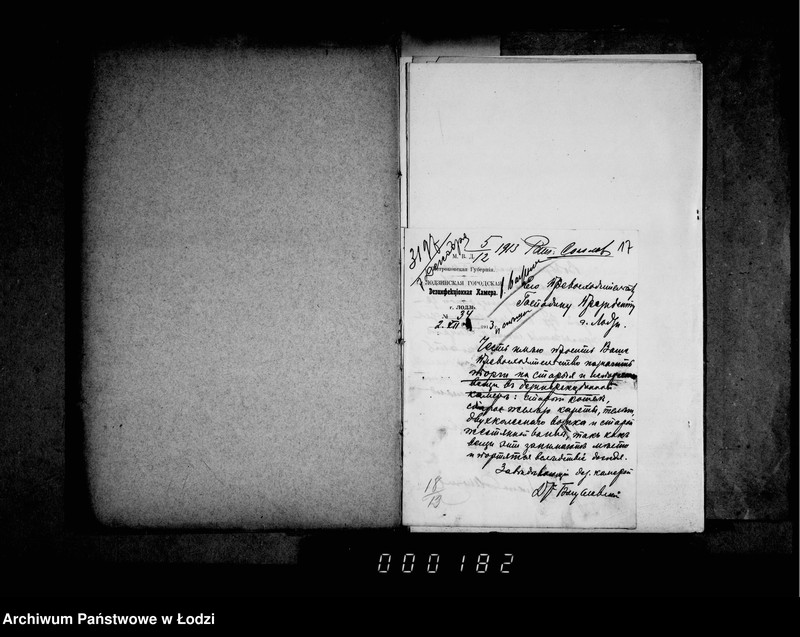 3197
5/12 1913
17
М. В. Д.
Петроковская Губернія.
ЛОДЗИНСКАЯ ГОРОДСКАЯ
Дезинфекціонная Камера.
г. ЛОДЗЬ.
№ 34
2 XII 1913
Его Превосходительству
Господину Президенту
г. Лодзи.
Честь имѣю просить Ваше
Превосходительство назначить
торги на старыя и
вещи въ дезинфекціонной
камерѣ: старой кареты,
двухколеснаго возка и старой
жестянной ванны, такъ какъ
вещи эти занимаютъ мѣсто
и портятся вслѣдствіе дождя.
Завѣдывающій дез. камерой
Др
18/13
000182
Archiwum Państwowe w Łodzi